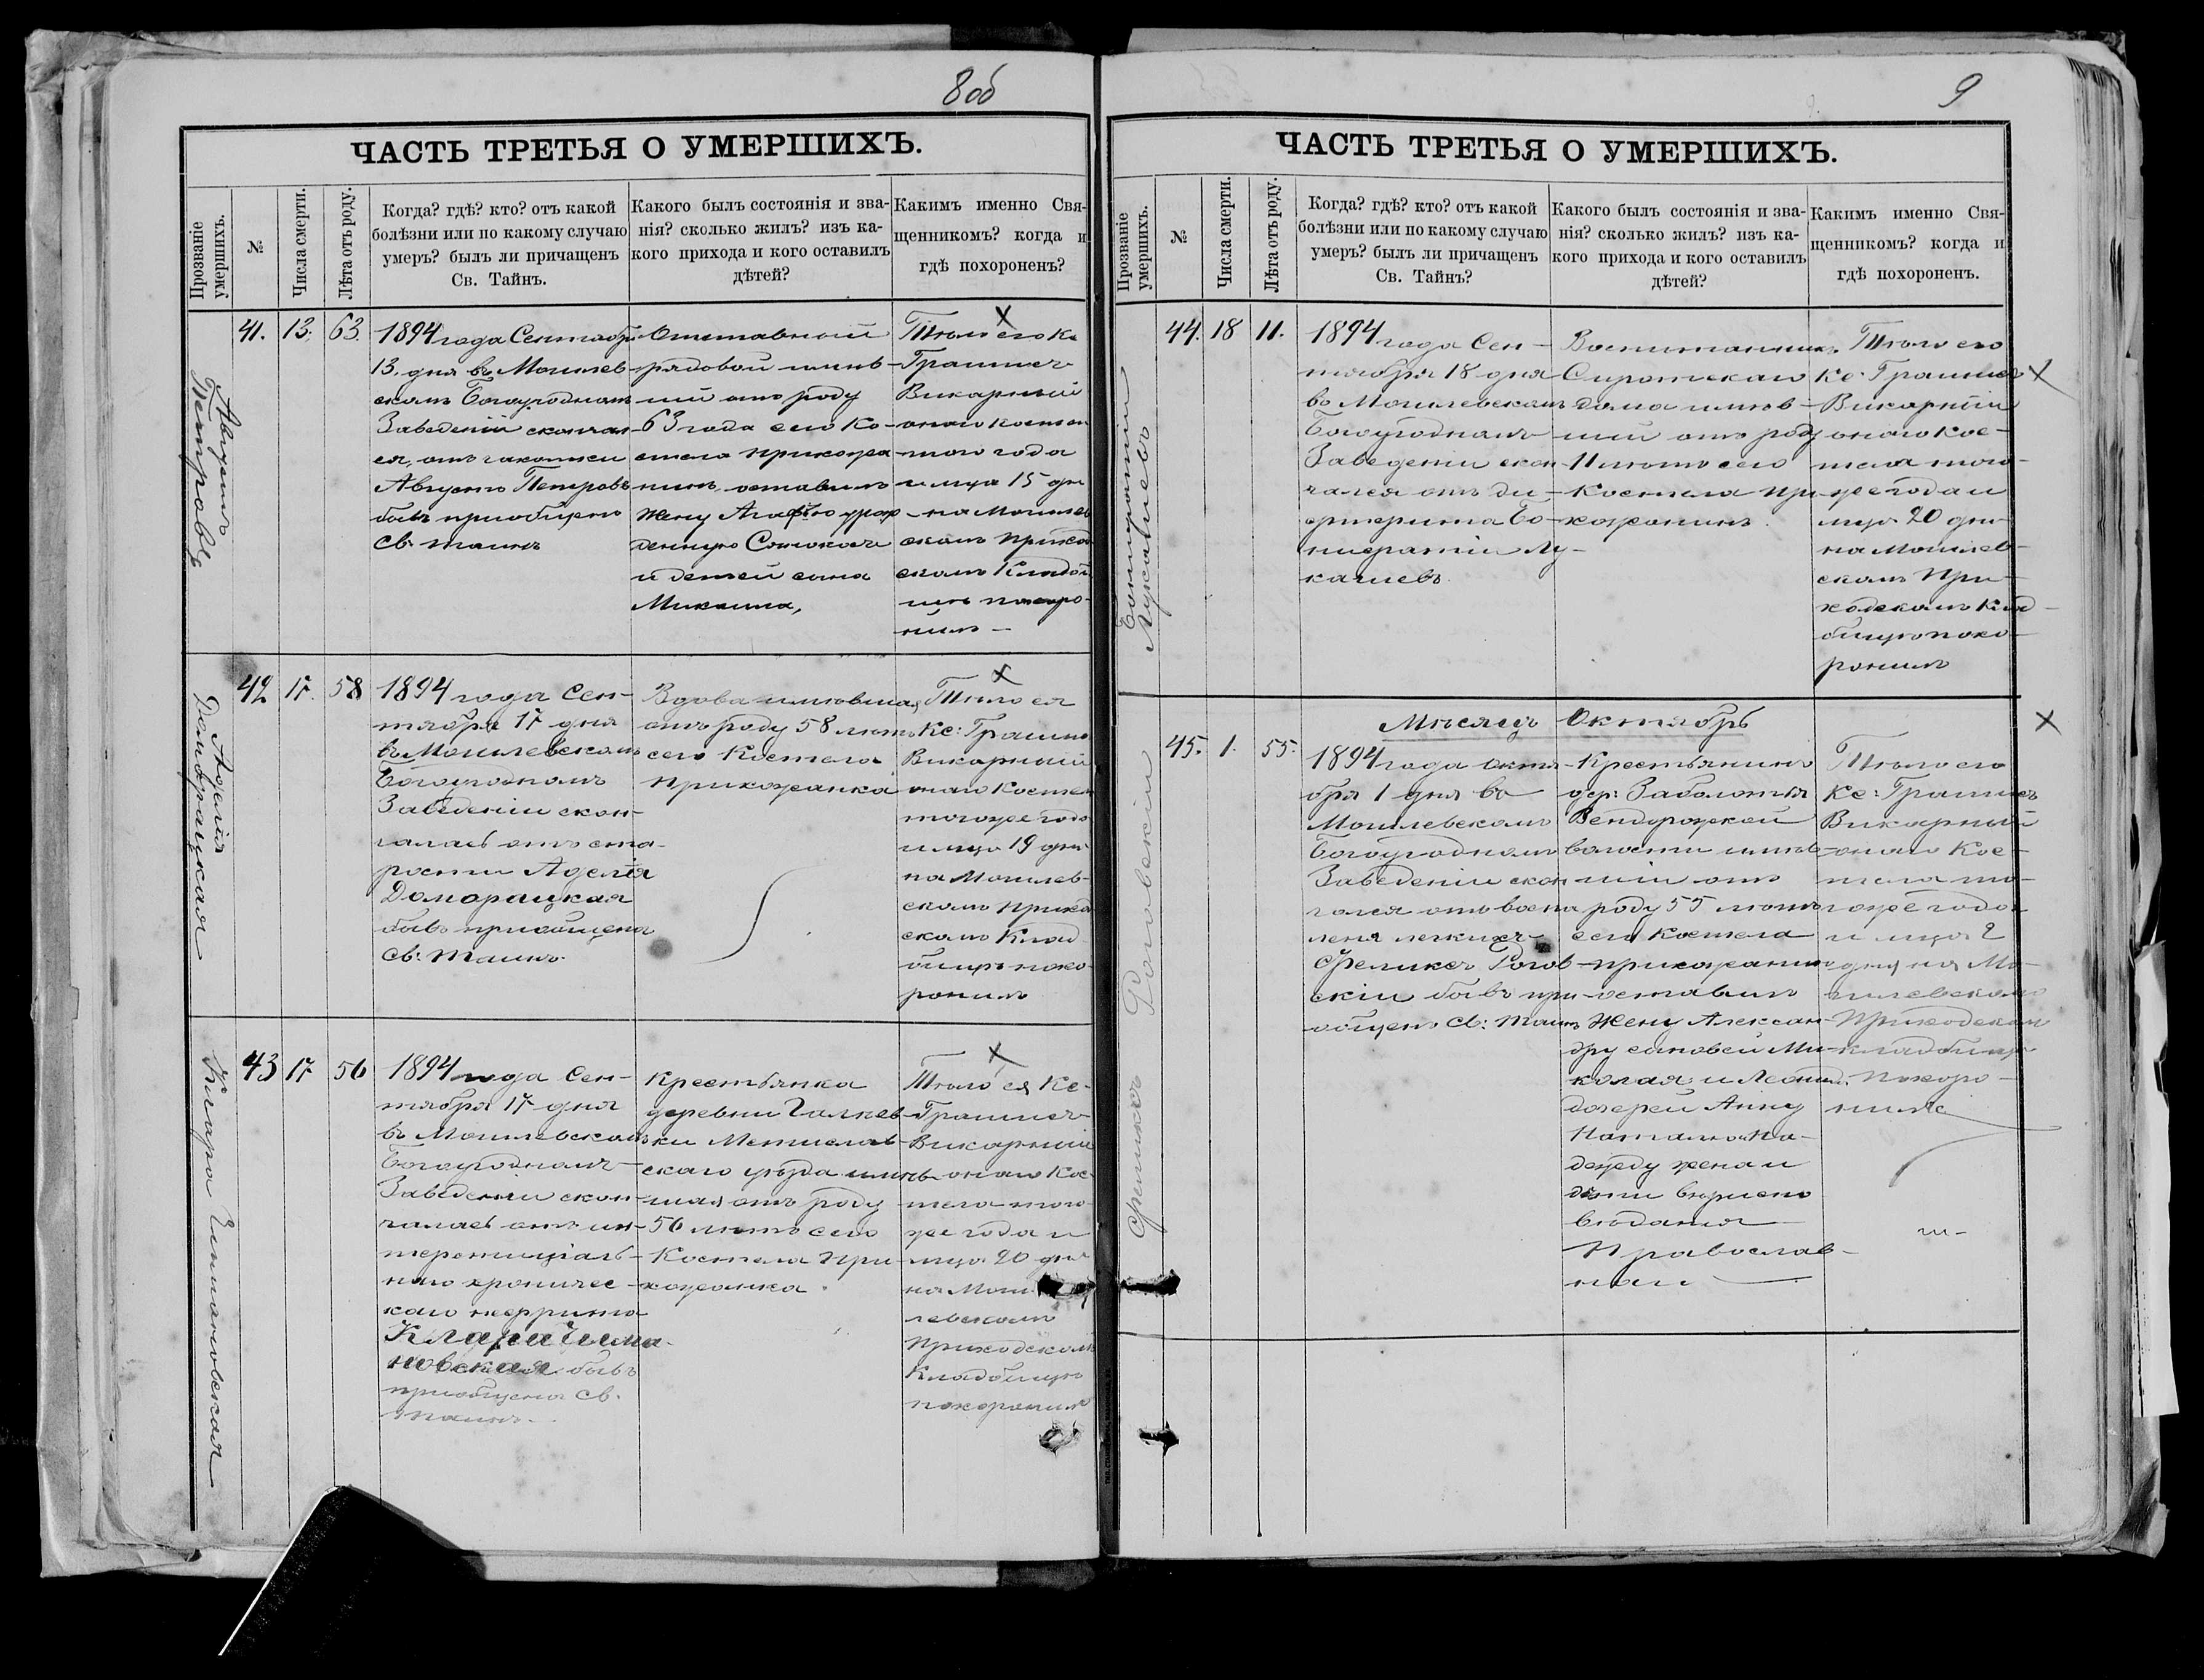 8об
ЧАСТЬ ТРЕТЬЯ О УМЕРШИХЪ.
Прозваніе умершихъ.
№
Числа смерти.
Лѣта отъ роду.
Когда? гдѣ? кто? отъ какой
болѣзни или по какому случаю
умеръ? былъ ли причащенъ
Св. Тайнъ.
Какого былъ состоянія и зва-
нія? сколько жилъ? изъ ка-
кого прихода и кого оставилъ
дѣтей?
Какимъ именно Свя-
щенникомъ? когда и
гдѣ похороненъ?
Августъ
Петровъ
41.
13.
63.
1894 года Сентябр
13. дня въ Могилев
скомъ Богоугодном
Заведеніи скончал
ся, отъ чахотки
Августъ Петровъ
бывъ приобщенъ
Св. таинъ
Отставной
рядовой имѣв-
шій отъ роду
63 года сего Ко-
стела прихожа-
нинъ оставилъ
жену Агафію урож
денную
и детей сына
Михаила,
Тѣло его Кс
Грашисъ
Викарный
онаго костел
того года
и мца 15 дн
на Могилев
скомъ приход
скомъ Кладби
щѣ похоро-
нилъ
Аделія
Доморацкая
42
17.
58
1894 года Сен-
тября 17 дня
въ Могилевскомъ
Богоугодномъ
Заведеніи скон-
чалась отъ ста-
рости Аделія
Доморацкая
бывъ приобщена
Св: таинъ.
Вдова имѣвшая
отъ роду 58 лѣтъ
сего Костела
прихожанка
Тѣло ея
Кс: Грашис
Викарный
онаго Костел
того же года
и мца 19 дня
на Могилев-
скомъ приход
скомъ Клад
бищѣ похо-
ронилъ
Клара Чимановская
43
17
56
1894 года Сен-
тября 17 дня
въ Могилевском
Богоугодномъ
Заведеніи скон-
чалась отъ ин-
терстиціаль-
наго хроничес-
каго нефрита
Клара Чима-
новская бывъ
приобщена Св.
таинъ.
Крестьянка
деревни
ки Мстислав-
скаго уѣзда имѣв-
шая отъ роду
56 лѣтъ сего
Костела при-
хожанка.
Тѣло ея Кс-
Грашисъ
Викарный
онаго Кос
тела того
же года и
мца 20 дня
на Моги
левскомъ
приходскомъ
Кладбищѣ
похоронилъ
9
ЧАСТЬ ТРЕТЬЯ О УМЕРШИХЪ.
Прозваніе умершихъ.
№
Числа смерти.
Лѣта отъ роду.
Когда? гдѣ? кто? отъ какой
болѣзни или по какому случаю
умеръ? былъ ли причащенъ
Св. Тайнъ?
Какого былъ состоянія и зва-
нія? сколько жилъ? изъ ка-
кого прихода и кого оставилъ
дѣтей?
Какимъ именно Свя-
щенникомъ? когда и
гдѣ похороненъ.
Бонифатій
Лукашевъ
44.
18
11.
1894 года Сен-
тября 18 дня
въ Могилевскомъ
Богоугодномъ
Заведеніи скон
чался отъ ди-
фтерита Бо-
нифатій Лу-
кашевъ.
Воспитанникъ
Сиротскаго
дома имѣв-
шій отъ роду
11 лѣтъ сего
Костела при-
хожанинъ.
Тѣло его
Кс: Грашисъ
Викарный
онаго Кос-
тела того-
же года и
мца 20 дня
на Могилев-
скомъ При-
ходскомъ Клад-
бищѣ похо-
ронилъ
Мѣсяцъ Октябрь
Феликсъ Роговскій
45.
1.
55.
1894 года Октя-
бря 1 дня въ
Могилевскомъ
Богоугодномъ
Заведеніи скон
чался отъ воспа
ленія легкихъ
Феликсъ Рогов-
скій бывъ при-
общенъ Св: таинъ
Крестьянинъ
дер: Заболотья
Вендорожской
волости имѣв-
шій отъ
роду 55 лѣтъ
сего Костела
прихожанинъ
оставилъ
жену Алексан-
дру сыновей Ни-
колая и
дочерей Анну
Наталью На-
дежду жена и
дѣти
Православ-
наго
Тѣло его
Кс: Грашисъ
Викарный
онаго Кос-
тела то-
го же года
и мца 2
дня на Мо-
гилевскомъ
Приходском
кладбищѣ
похоро-
нилъ